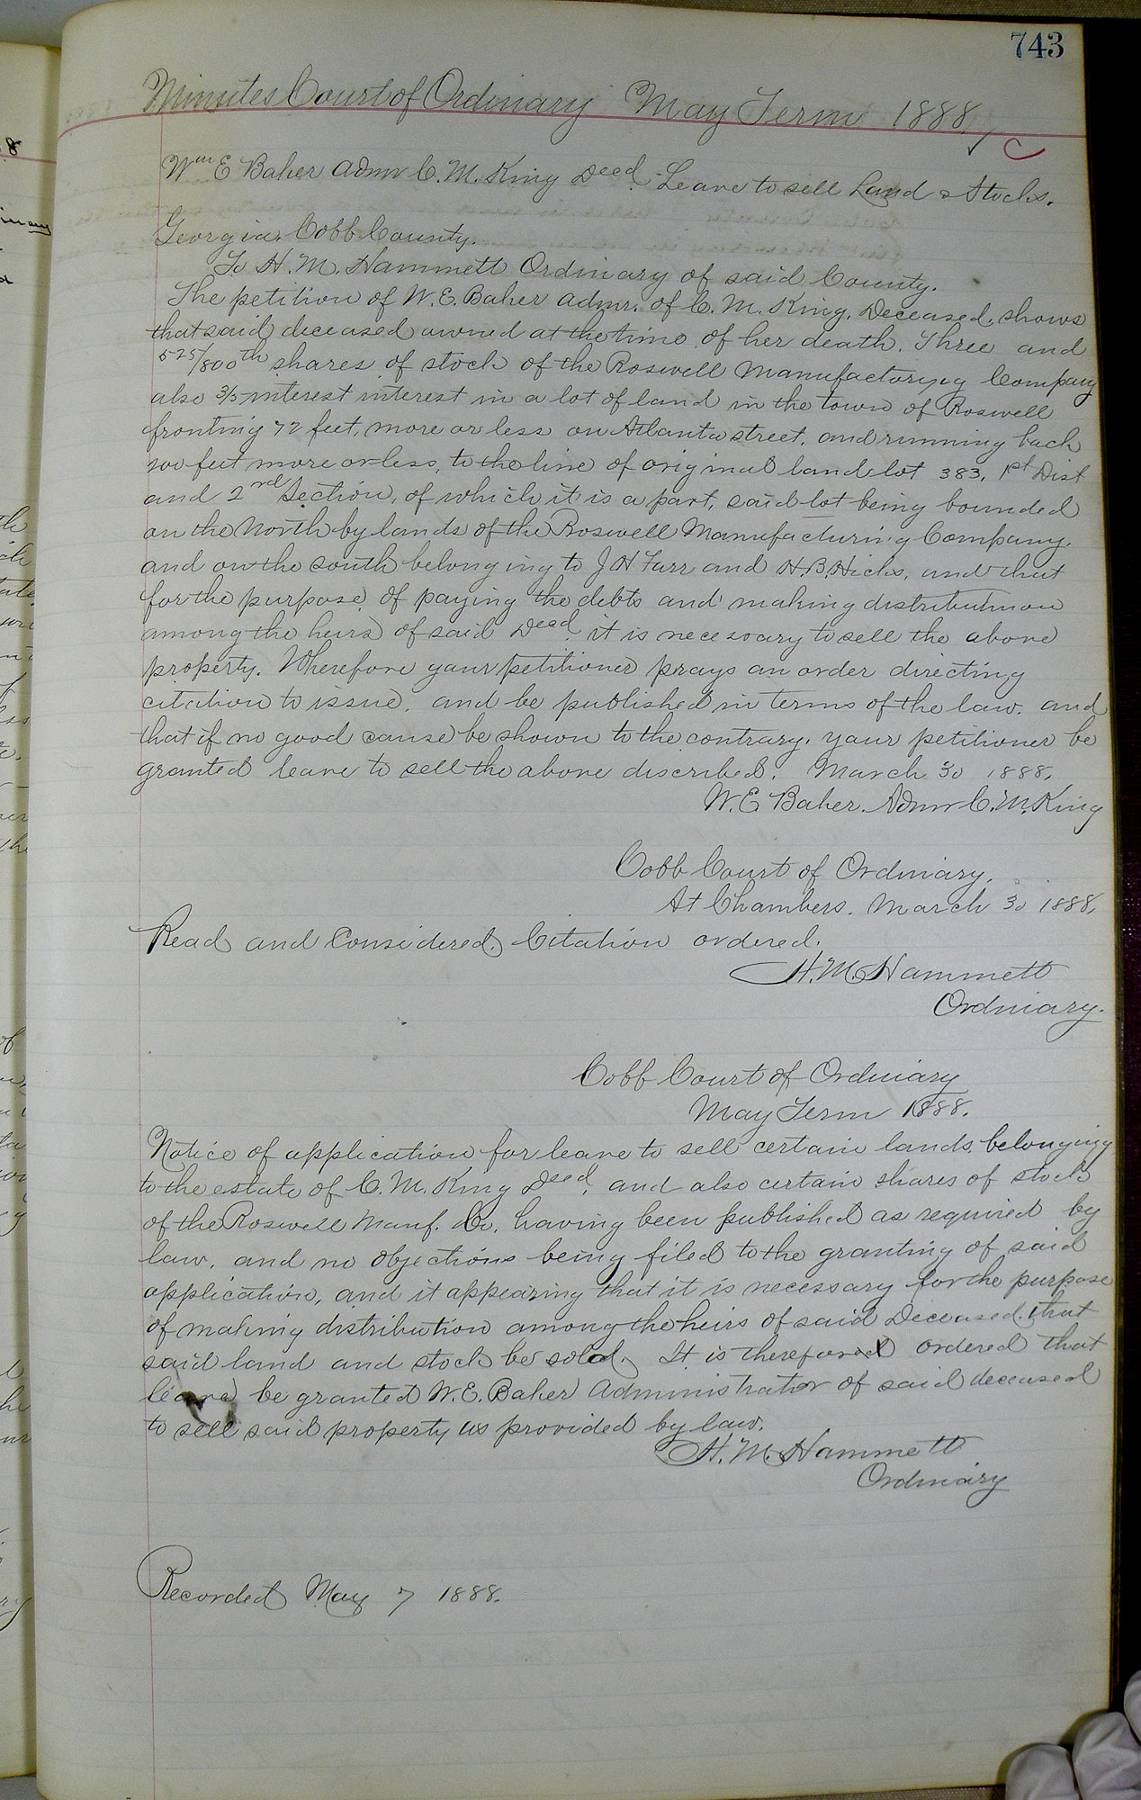 743
Minutes Court of Ordinary May Term 1888
Wm E Baker Admr C. M. King Decd. Leave to sell Land & Stocks.
Georgia, Cobb County.
To H. M. Hammett Ordinary of said County.
The petition of W. E. Baker admr. of C. M. King, Deceased, shows
that said deceased owned at the time of her death. Three and
525/800th shares of stock of the Roswell Company
also 3/5 interest interest in a lot of land in the town of Roswell
fronting 72 feet, more or less on Atlanta street, and running back
feet more or less, to the line of original land lot 383, 1st Dist
and 2nd Section, of which it is a part, said lot being bounded
on the North by lands of the Roswell Manufacturing Company,
and on the south belonging to J H Farr and H. B. Hicks, and that
for the purpose of paying the debts and making distribution
among the heirs of said Decd. it is necessary to sell the above
property. Wherefore your petitioner prays an order directing
citation to issue, and be published in terms of the law. and
that if no good cause be shown to the contrary, your petitioner be
granted leave to sell the above discribed. March 30 1888.
W. E. Baker. Admr C. M. King
Cobb Court of Ordinary.
At Chambers. March 30 1888.
Read and Considered. Citation ordered.
H. M. Hammett
Ordinary.
Cobb Court of Ordinary
May Term 1888.
Notice of application for leave to sell certain lands, belonging
to the estate of C. M. King Decd, and also certain shares of stock
of the Roswell Manf. Co, having been published as required by
law, and no objections being filed to the granting of said
application, and it appearing that it is necessary for the purpose
of making distribution among the heirs of said Deceased, that
said land and stock be sold. It is therefore ordered that
leave be granted W. E. Baker Administrator of said deceased
to sell said property as provided by law.
H. M. Hammett
Ordinary
Recorded May 7 1888.